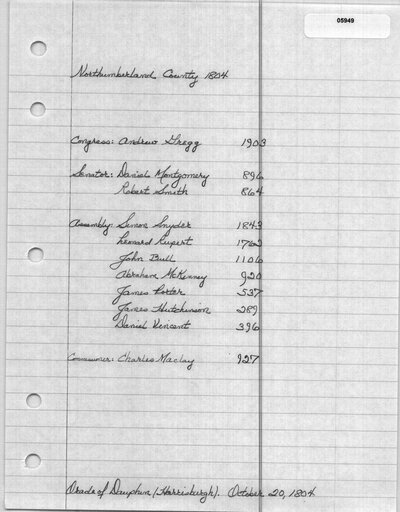 05949
Northumberland County 1804
Congress: Andrew Gregg 1903
Senator: Daniel Montgomery 896
Robert Smith 864
Assembly: Simon Snyder 1843
Leonard Rupert 1762
John Bull 1106
Abraham McKinney 920
James Porter 537
James Hutchinson 289
Daniel Vincent 396
Commissioner: Charles Maclay 927
Oracle of Dauphin (Harrisburgh). October 20, 1804